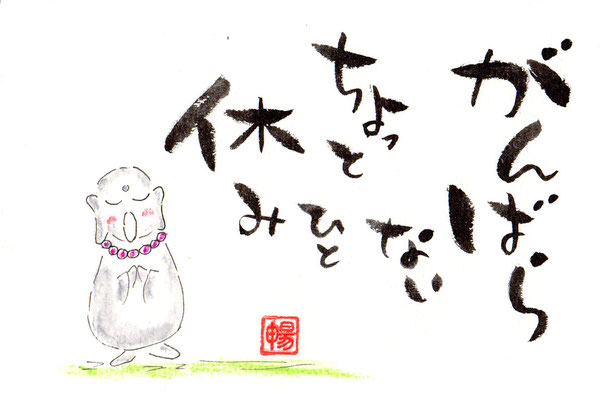 がんばら
ない
ちょっと
ひと
休み
暢